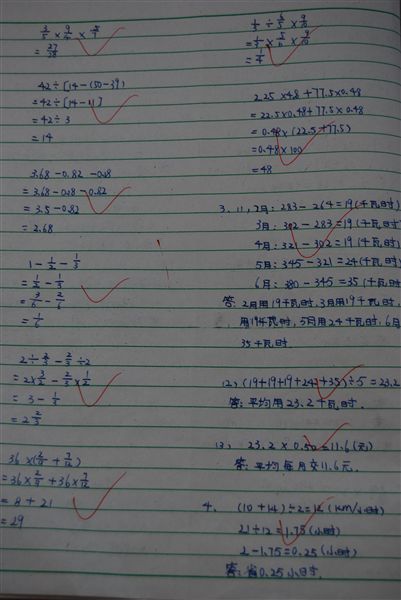 3/5 × 9/4 × 5/7
= 27/28
42÷[14-(50-39)
=42÷[14-11]
=42÷3
=14
3.68-0.82-0.18
=3.68-0.18-0.82
=3.5-0.82
=2.68
1-1/2-1/3
=1/2-1/3
=3/6-2/6
=1/6
2÷2/3-2/3÷2
=2×3/2-2/3×1/2
=3-1/3
=2 2/3
36×(2/9+7/12)
=36×2/9+36×7/12
=8+21
=29
=1/4
2.25×48+77.5×0.48
=22.5×0.48+77.5×0.48
=0.48×(22.5+77.5)
=0.48×100
=48
3、(1)、2月: 283-264=19(千瓦时)
3月: 302-283=19(千瓦时)
4月: 321-302=19(千瓦时)
5月: 345-321=24(千瓦时)
6月: 380-345=35(千瓦时)
答: 2月用19千瓦时,3月用19千瓦时,
用19千瓦时,5月用24千瓦时,6月
35千瓦时.
(2) (19+19+19+24+35)÷5=23.2
答:平均用23.2千瓦时.
(3) 23.2×0.50=11.6(元)
答:平均每月交11.6元.
4、 (10+14)÷2=12(km/小时)
21÷12=1.75(小时)
2-1.75=0.25(小时)
答:省0.25小时.